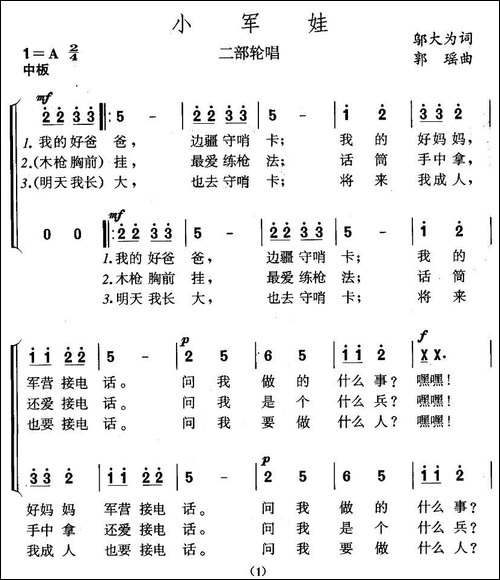 小军娃
1=A 2/4
二部轮唱
邬大为词
中板
郭瑶曲
mf
2 2 3 3 5 - 2 2 3 3 5 - 1 2 3 3 3
1.我的好爸爸, 边疆守哨卡; 我的好妈妈,
2.(木枪胸前)挂, 最爱练枪法; 话筒手中拿,
3.(明天我长)大, 也去守哨卡; 将来我成人,
mf
0 0 2 2 3 3 5 - 2 2 3 3 5 - 1 2
1.我的好爸爸, 边疆守哨卡; 我的
2.木枪胸前挂, 最爱练枪法; 话筒
3.明天我长大, 也去守哨卡; 将来
p f
1 1 2 2 5 - 2 5 6 5 1 1 2 X X.
军营接电话。 问我做的什么事? 嘿嘿!
还爱接电话。 问我是个什么兵? 嘿嘿!
也要接电话。 问我要做什么人? 嘿嘿!
p
3 3 2 1 1 2 2 5 - 2 5 6 5 1 1 2
好妈妈 军营接电话。 问我做的什么事?
手中拿 还爱接电话。 问我是个什么兵?
我成人 也要接电话。 问我要做什么人?
(1)